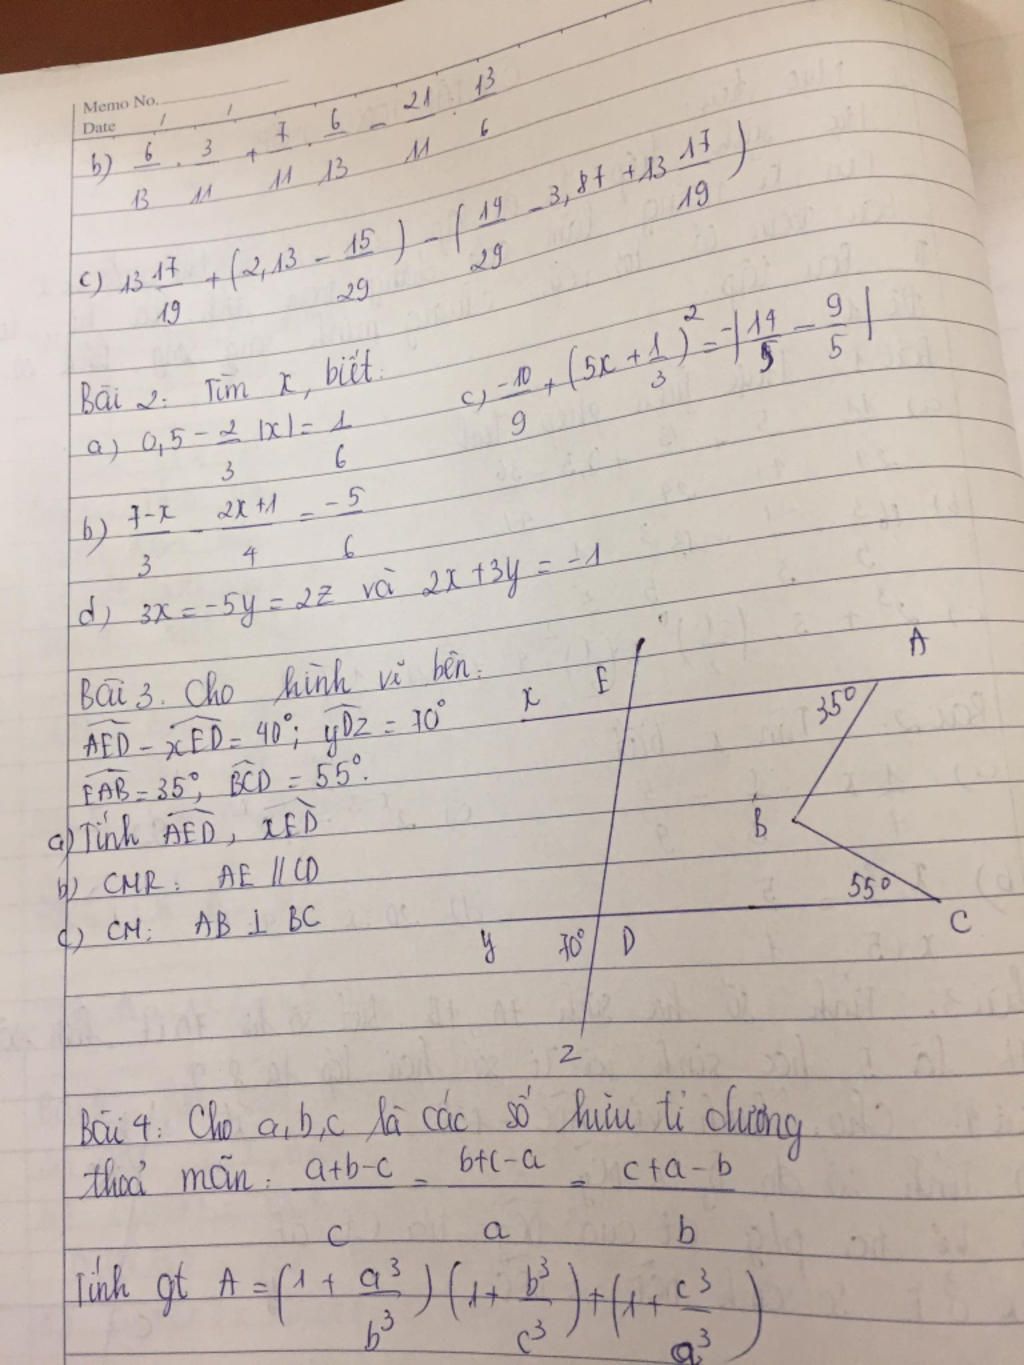 Memo No.
Date / /
b) 6/13 . 3/11 + 7/11 . 6/13 - 21/11 . 13/6
c) 13 17/19 + (2,13 - 15/29) - (14/29 - 3,87 + 13 17/19)
Bài 2: Tìm x, biết:
a) 0,5 - 2/3 |x| = 1/6
c, -10/9 + (5x + 1/3)² = -|14/5 - 9/5|
b) 7-x/3 - 2x+1/4 = -5/6
d) 3x = -5y = 2z và 2x + 3y = -1
Bài 3. Cho hình vẽ bên:
AED - xED = 40°; yDz = 70°
EAB = 35°, BCD = 55°.
a) Tính AED, xED
b) CMR: AE // CD
c) CM: AB ⊥ BC
x E A
35°
B
55°
y 70° D C
z
Bài 4: Cho a, b, c là các số hữu tỉ dương
thoả mãn: a+b-c/c = b+c-a/a = c+a-b/b
Tính gt A = (1 + a³/b³) (1 + b³/c³) + (1 + c³/a³)